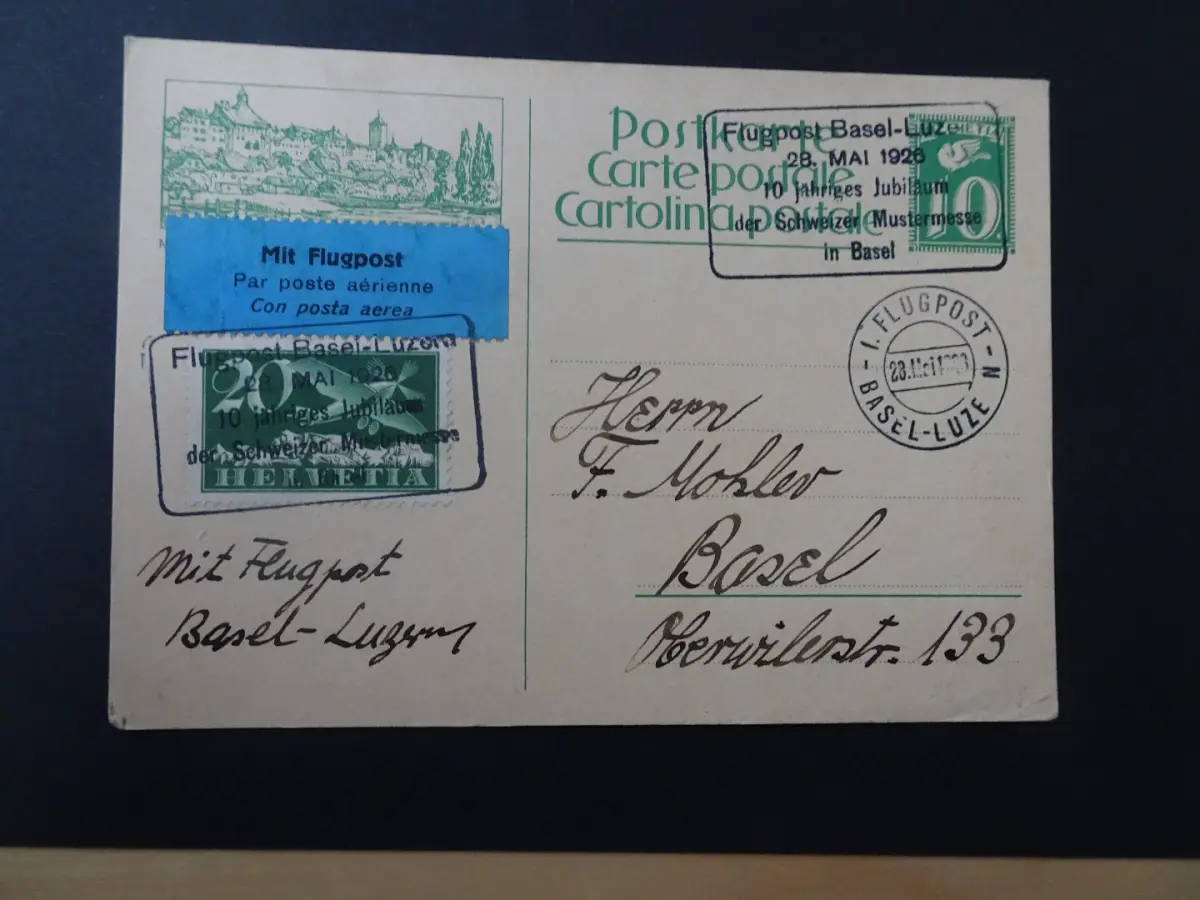 Postkarte
Carte postale
Cartolina postale
HELVETIA
10
Flugpost Basel-Luze
28. MAI 1926
10 jähriges Jubiläum
der Schweizer Mustermesse
in Basel
Mit Flugpost
Par poste aérienne
Con posta aerea
Flugpost Basel-Luzern
28. MAI 1926
10 jähriges Jubiläum
der Schweizer Mustermesse
20
HELVETIA
I. FLUGPOST - N
28.Mai 1926
BASEL-LUZE
Herrn
F. Mohler
Basel
Oberwilerstr. 133
Mit Flugpost
Basel-Luzern